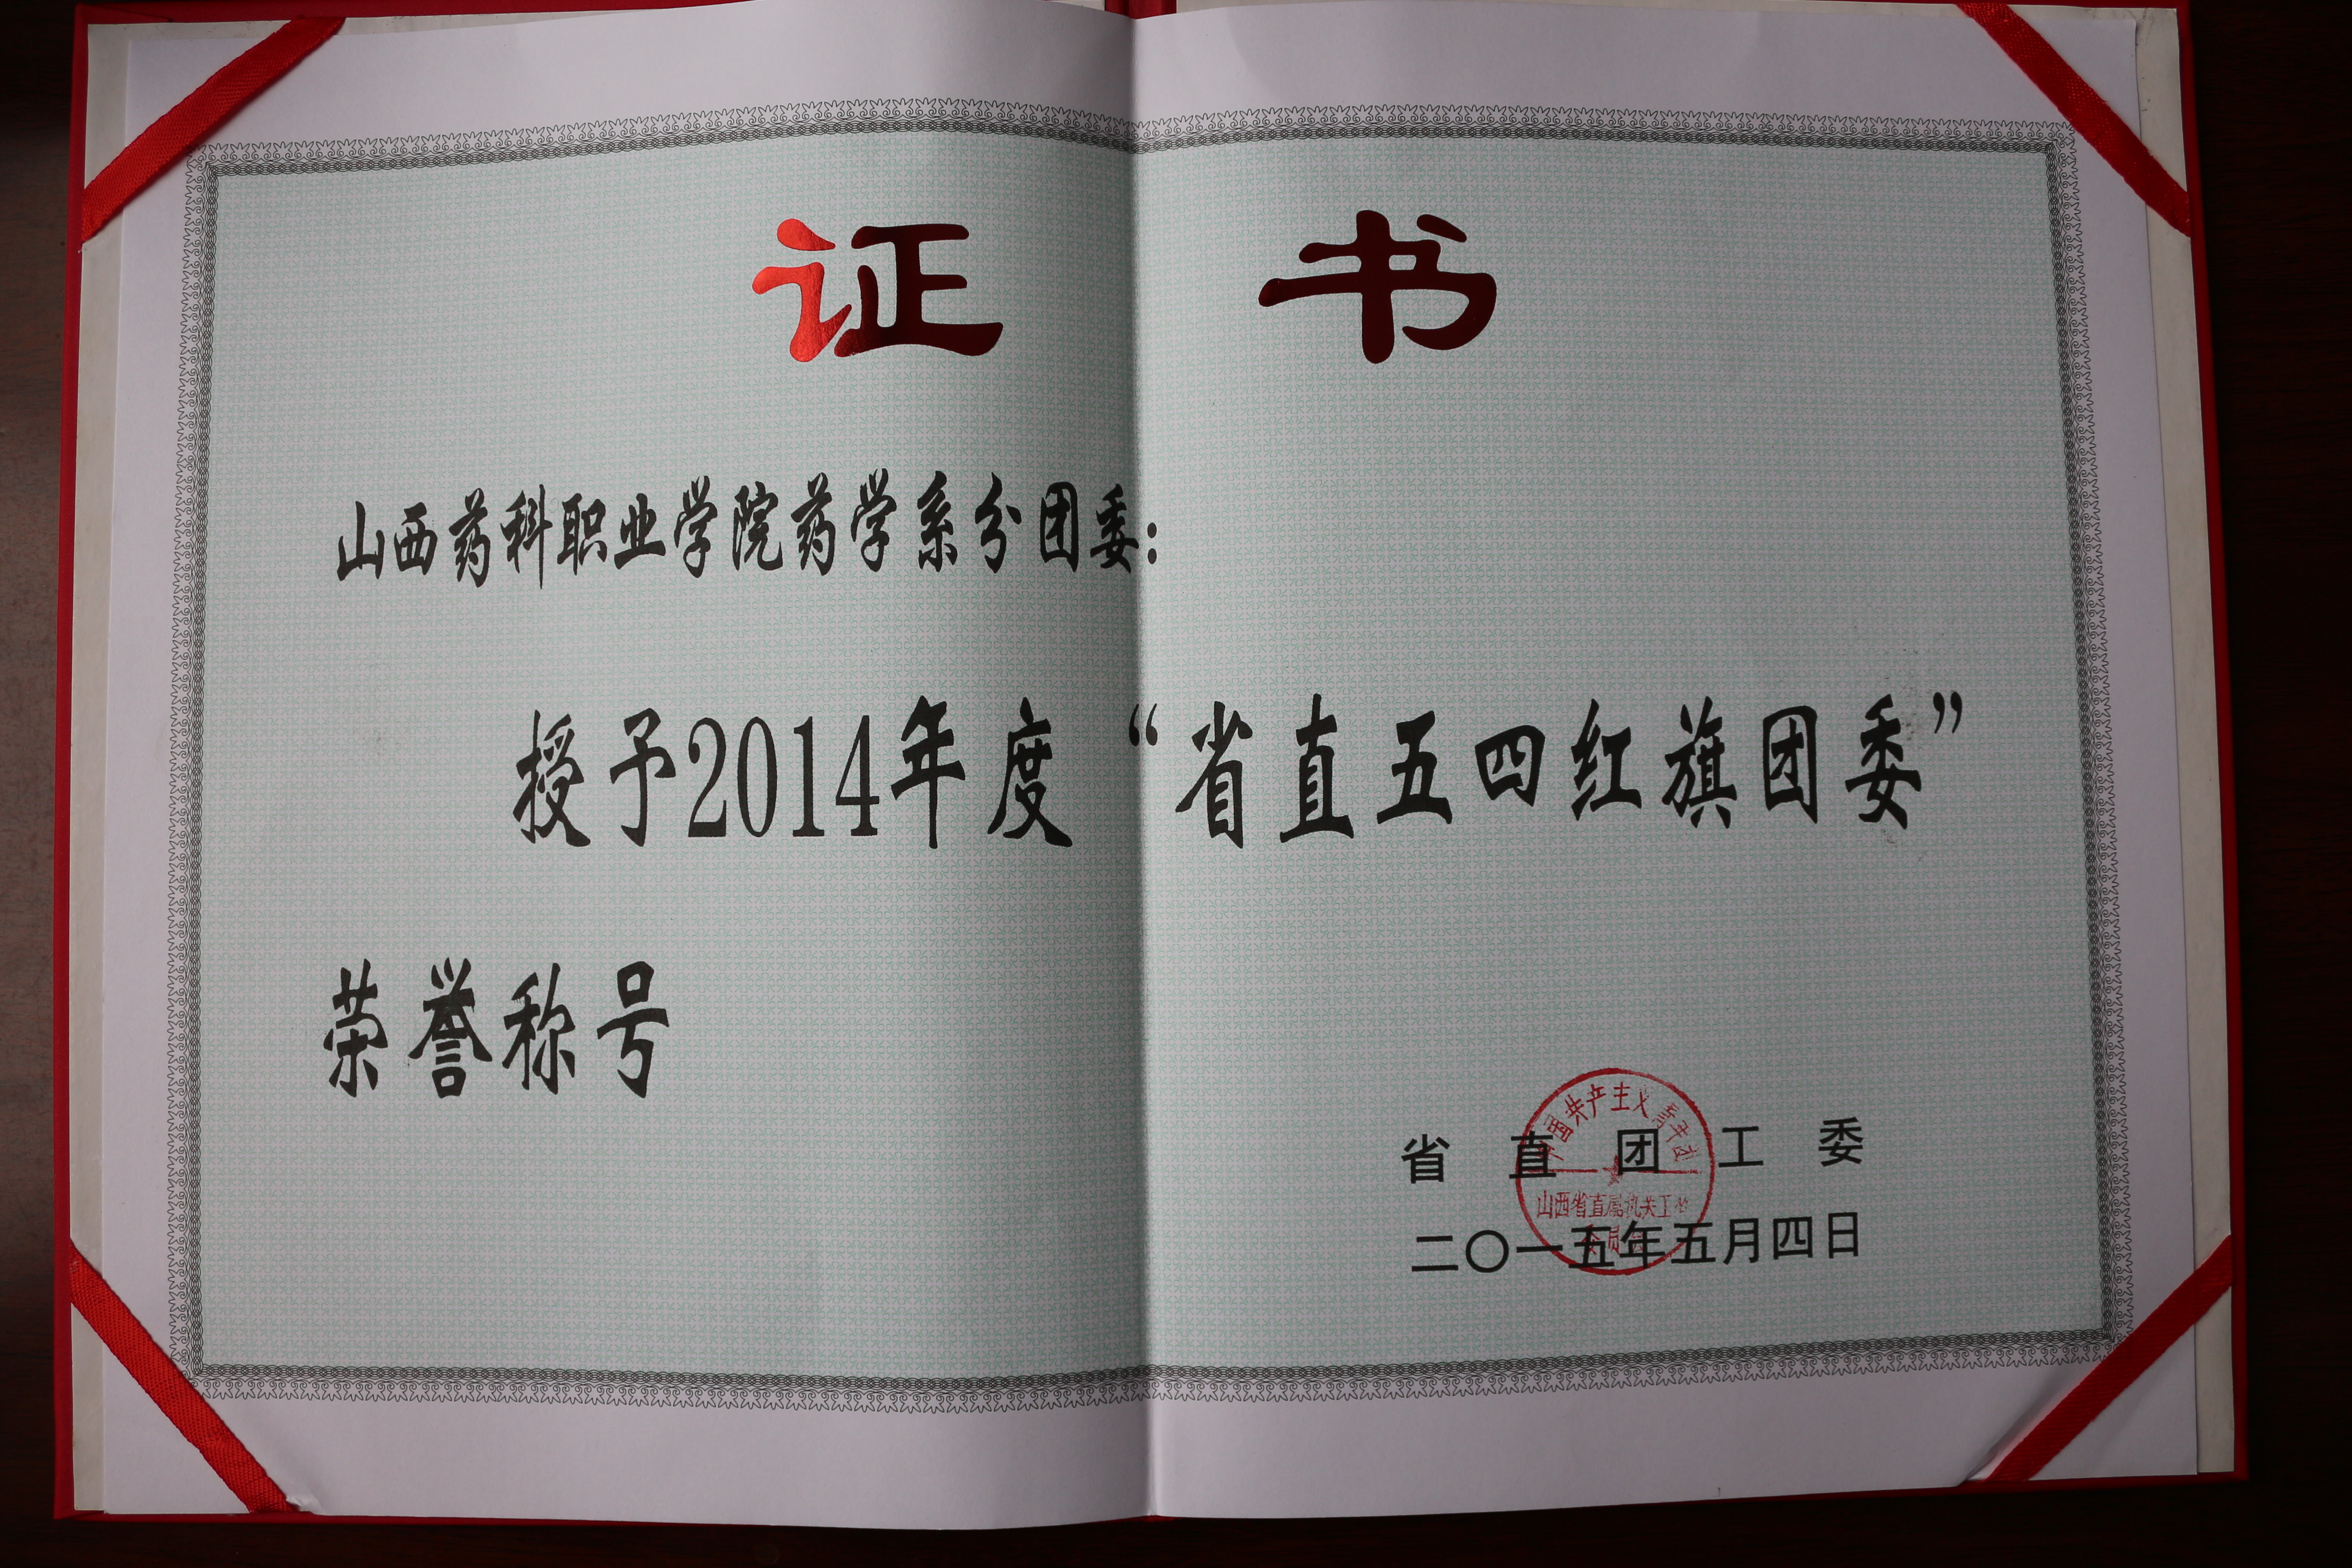 证 书
山西药科职业学院药学系分团委：
授予2014年度“省直五四红旗团委”
荣誉称号
共产主义青年团
省直团工委
山西省直属机关工
二〇一五年五月四日